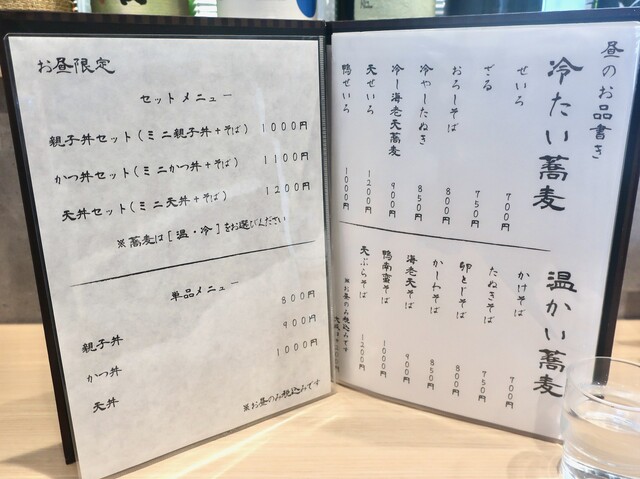 お昼限定
セットメニュー
親子丼セット(ミニ親子丼+そば) 1000円
かつ丼セット(ミニかつ丼+そば) 1100円
天丼セット(ミニ天丼+そば) 1200円
※蕎麦は[温・冷]をお選びください
単品メニュー
親子丼 800円
かつ丼 900円
天丼 1000円
※お昼のみ税込みです
昼のお品書き
冷たい蕎麦
せいろ 700円
ざる 750円
おろしそば 800円
冷やしたぬき 850円
冷し海老天蕎麦 900円
天せいろ 1200円
鴨せいろ 1000円
温かい蕎麦
かけそば 700円
たぬきそば 750円
卵とじそば 800円
かしわそば 850円
海老天そば 900円
鴨南蛮そば 1000円
天ぷらそば 1200円
※お昼のみ税込みです